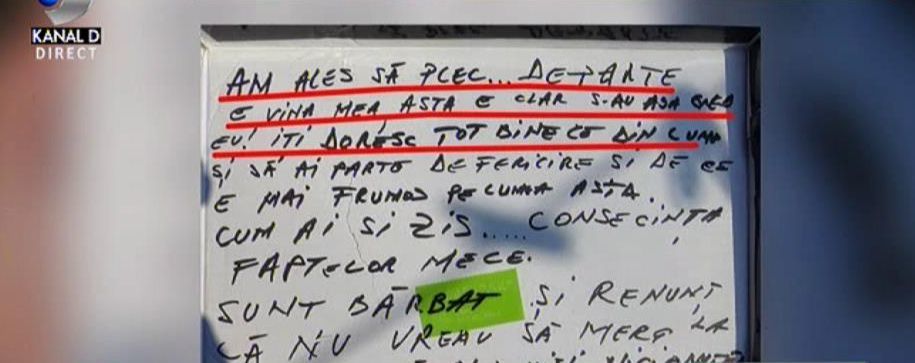 KANAL D
DIRECT
AM ALES SĂ PLEC... DEPARTE
E VINA MEA, ASTA E CLAR S-AU AȘA CRED
EU! ITI DORESC TOT BINE CE DIN LUMA
ȘI SĂ AI PARTE DE FERICIRE SI DE CE
E MAI FRUMOS PE LUMEA ASTA.
CUM AI SI ZIS..... CONSECINȚA
FAPTELOR MELE.
SUNT BĂRBAT ȘI RENUNȚ
CĂ NU VREAU SĂ MERG LA